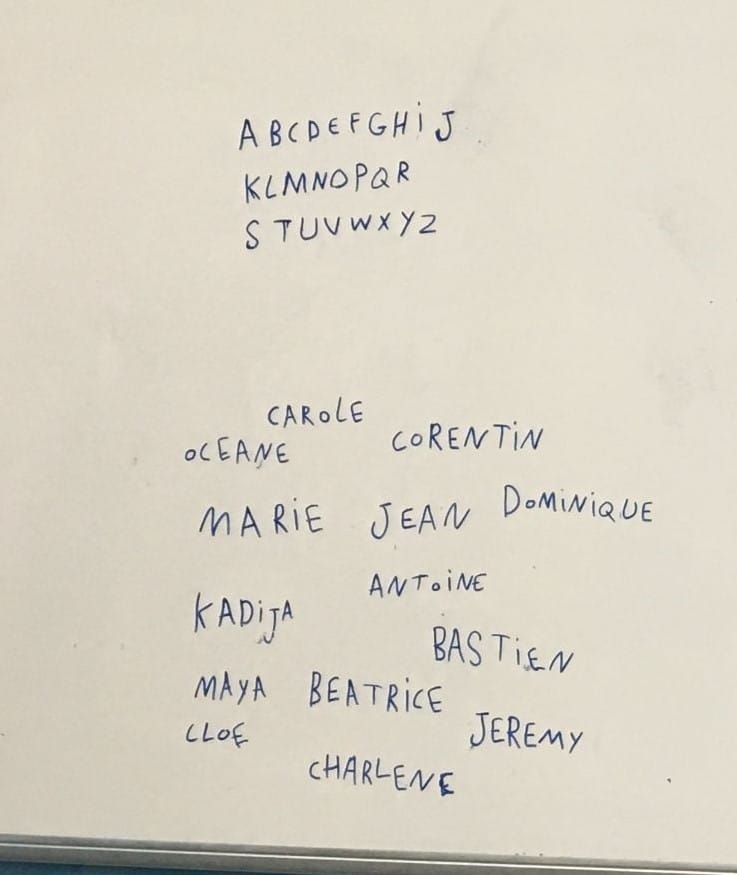 ABCDEFGHiJ
KLMNOPQR
STUVWXYZ
CAROLE
OCEANE CORENTiN
MARiE JEAN DOMiNiQUE
ANTOiNE
KADiJA
BASTiEN
MAYA BEATRiCE
CLOE JEREMY
CHARLENE